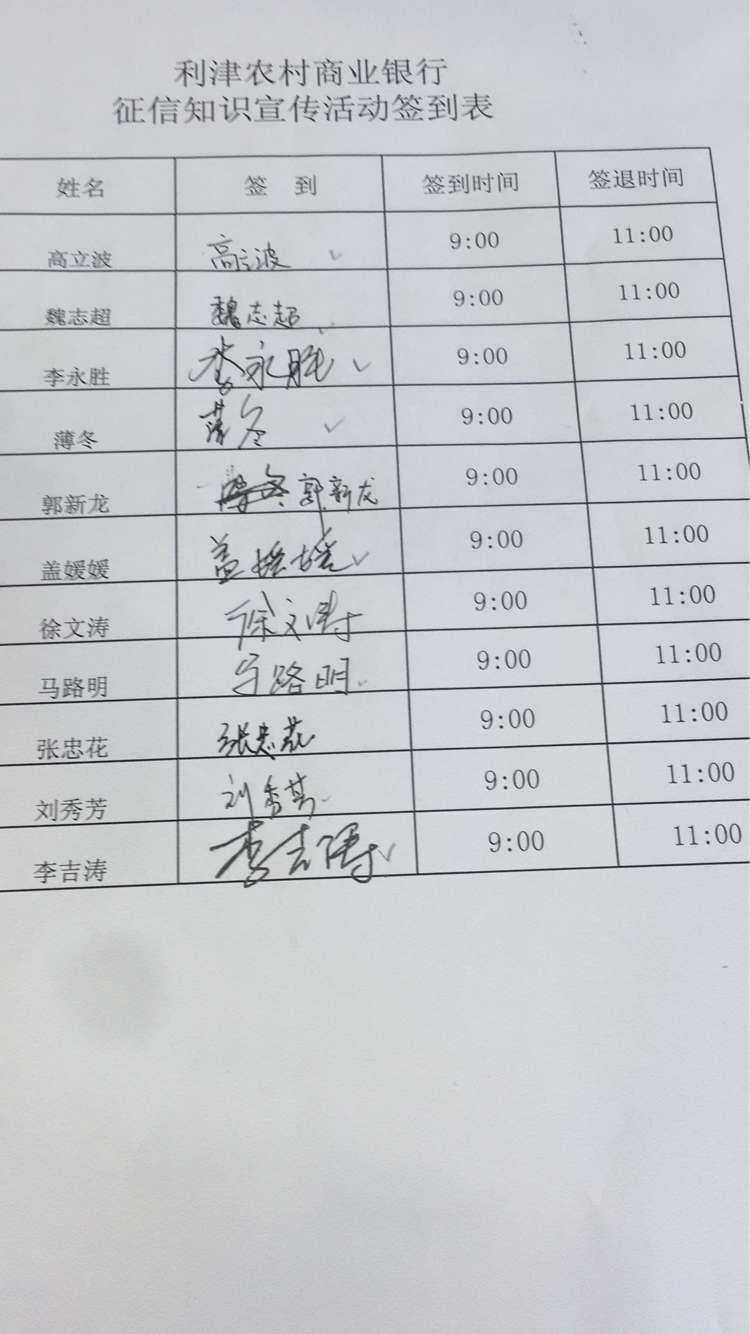 利津农村商业银行
征信知识宣传活动签到表
姓名 签 到 签到时间 签退时间
高立波 高立波 9:00 11:00
魏志超 魏志超 9:00 11:00
李永胜 李永胜 9:00 11:00
薄冬 薄冬 9:00 11:00
郭新龙 郭新龙 9:00 11:00
盖媛媛 盖媛媛 9:00 11:00
徐文涛 徐文涛 9:00 11:00
马路明 马路明 9:00 11:00
张忠花 张忠花 9:00 11:00
刘秀芳 刘秀芳 9:00 11:00
李吉涛 李吉涛 9:00 11:00